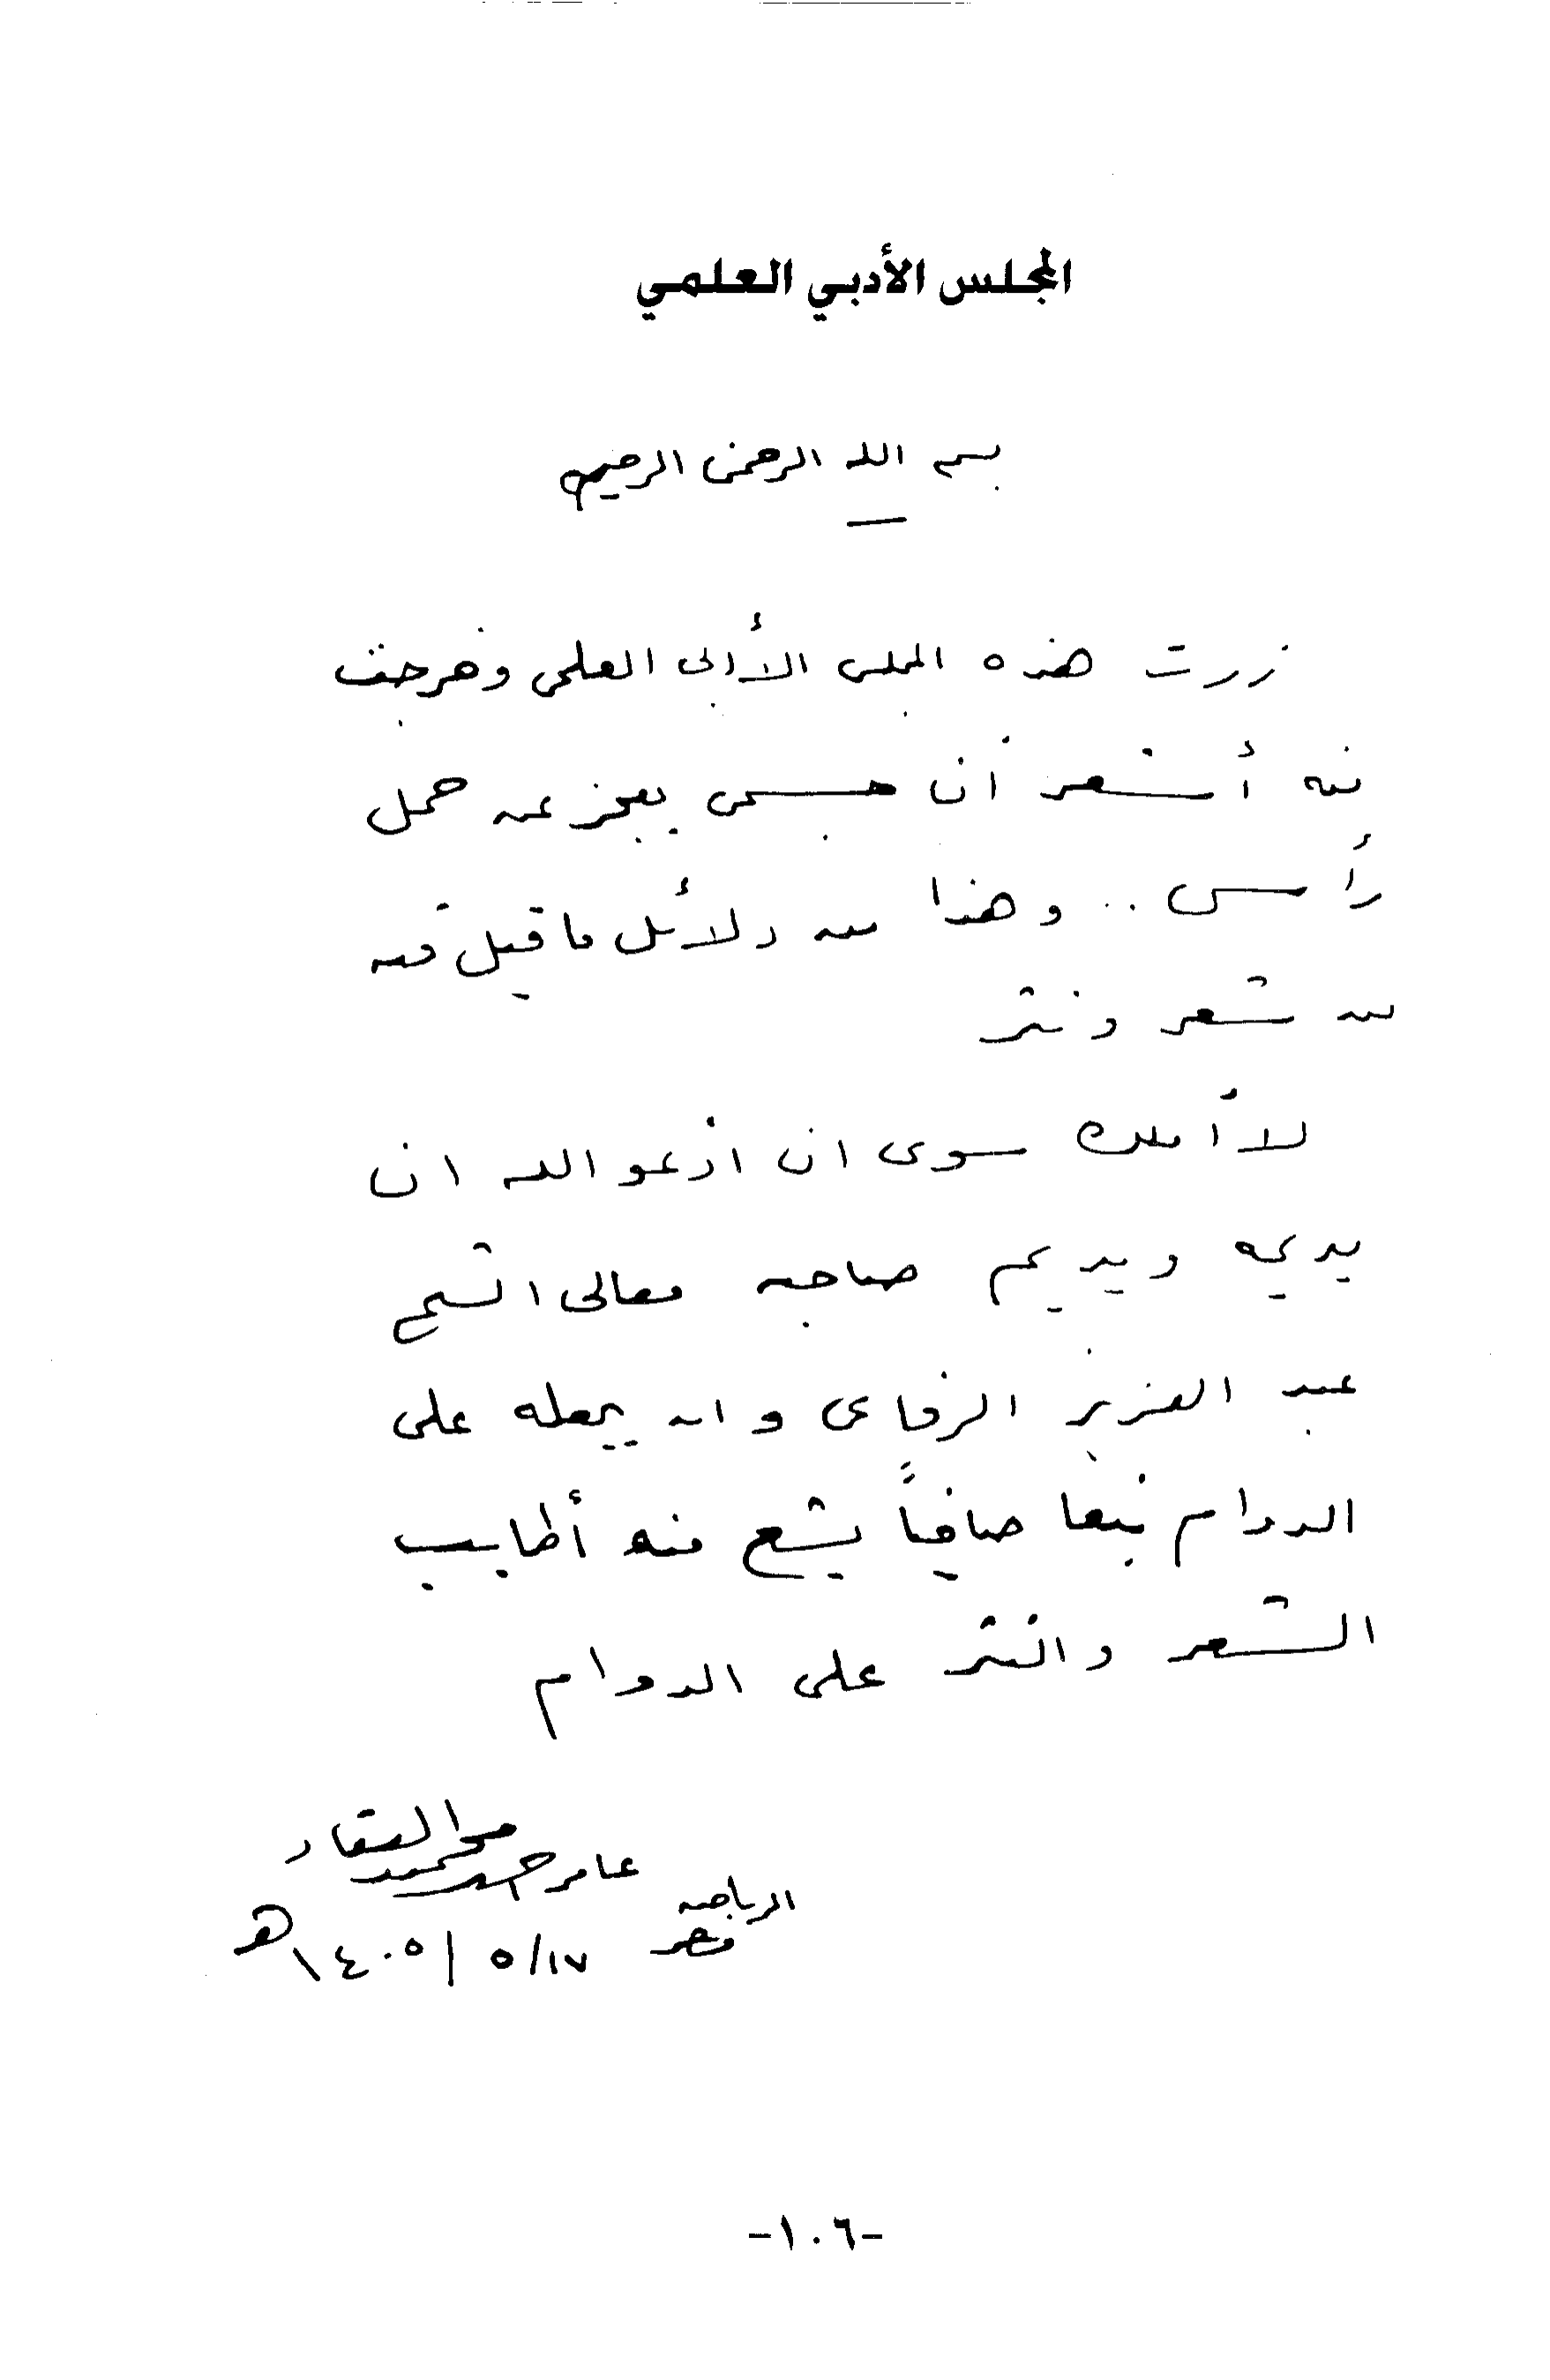 المجلس الأدبي العلمي
بسم الله الرحمن الرحيم
زرت هذه المجلس الأدبى العلمى وخرجت
منه أشعر أن جسمى يعجز عن حمل
رأسى .. وهذا من دلائل ما قيل فيه
من شعر ونثر
لا أملك سوى ان ادعو الله ان
يديمه ويديم صاحبه معالى الشيخ
عبد العزيز الرفاعى وان يجعله على
الدوام نبعا صافياً يشع منه أطايب
الشعر والنثر على الدوام
عامر احمد محمد العقاد
الرياض
١٧/ ٥ / ١٤٠٥هـ
-١٠٦-